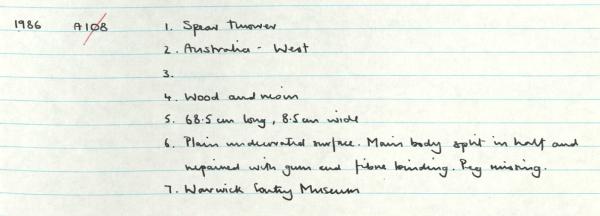 1986 A108 1. Spear thrower
2. Australia - West
3.
4. Wood and resin
5. 68.5 cm long, 8.5 cm wide
6. Plain undecorated surface. Main body split in half and
repaired with gum and fibre binding. Peg missing.
7. Warwick County Museum